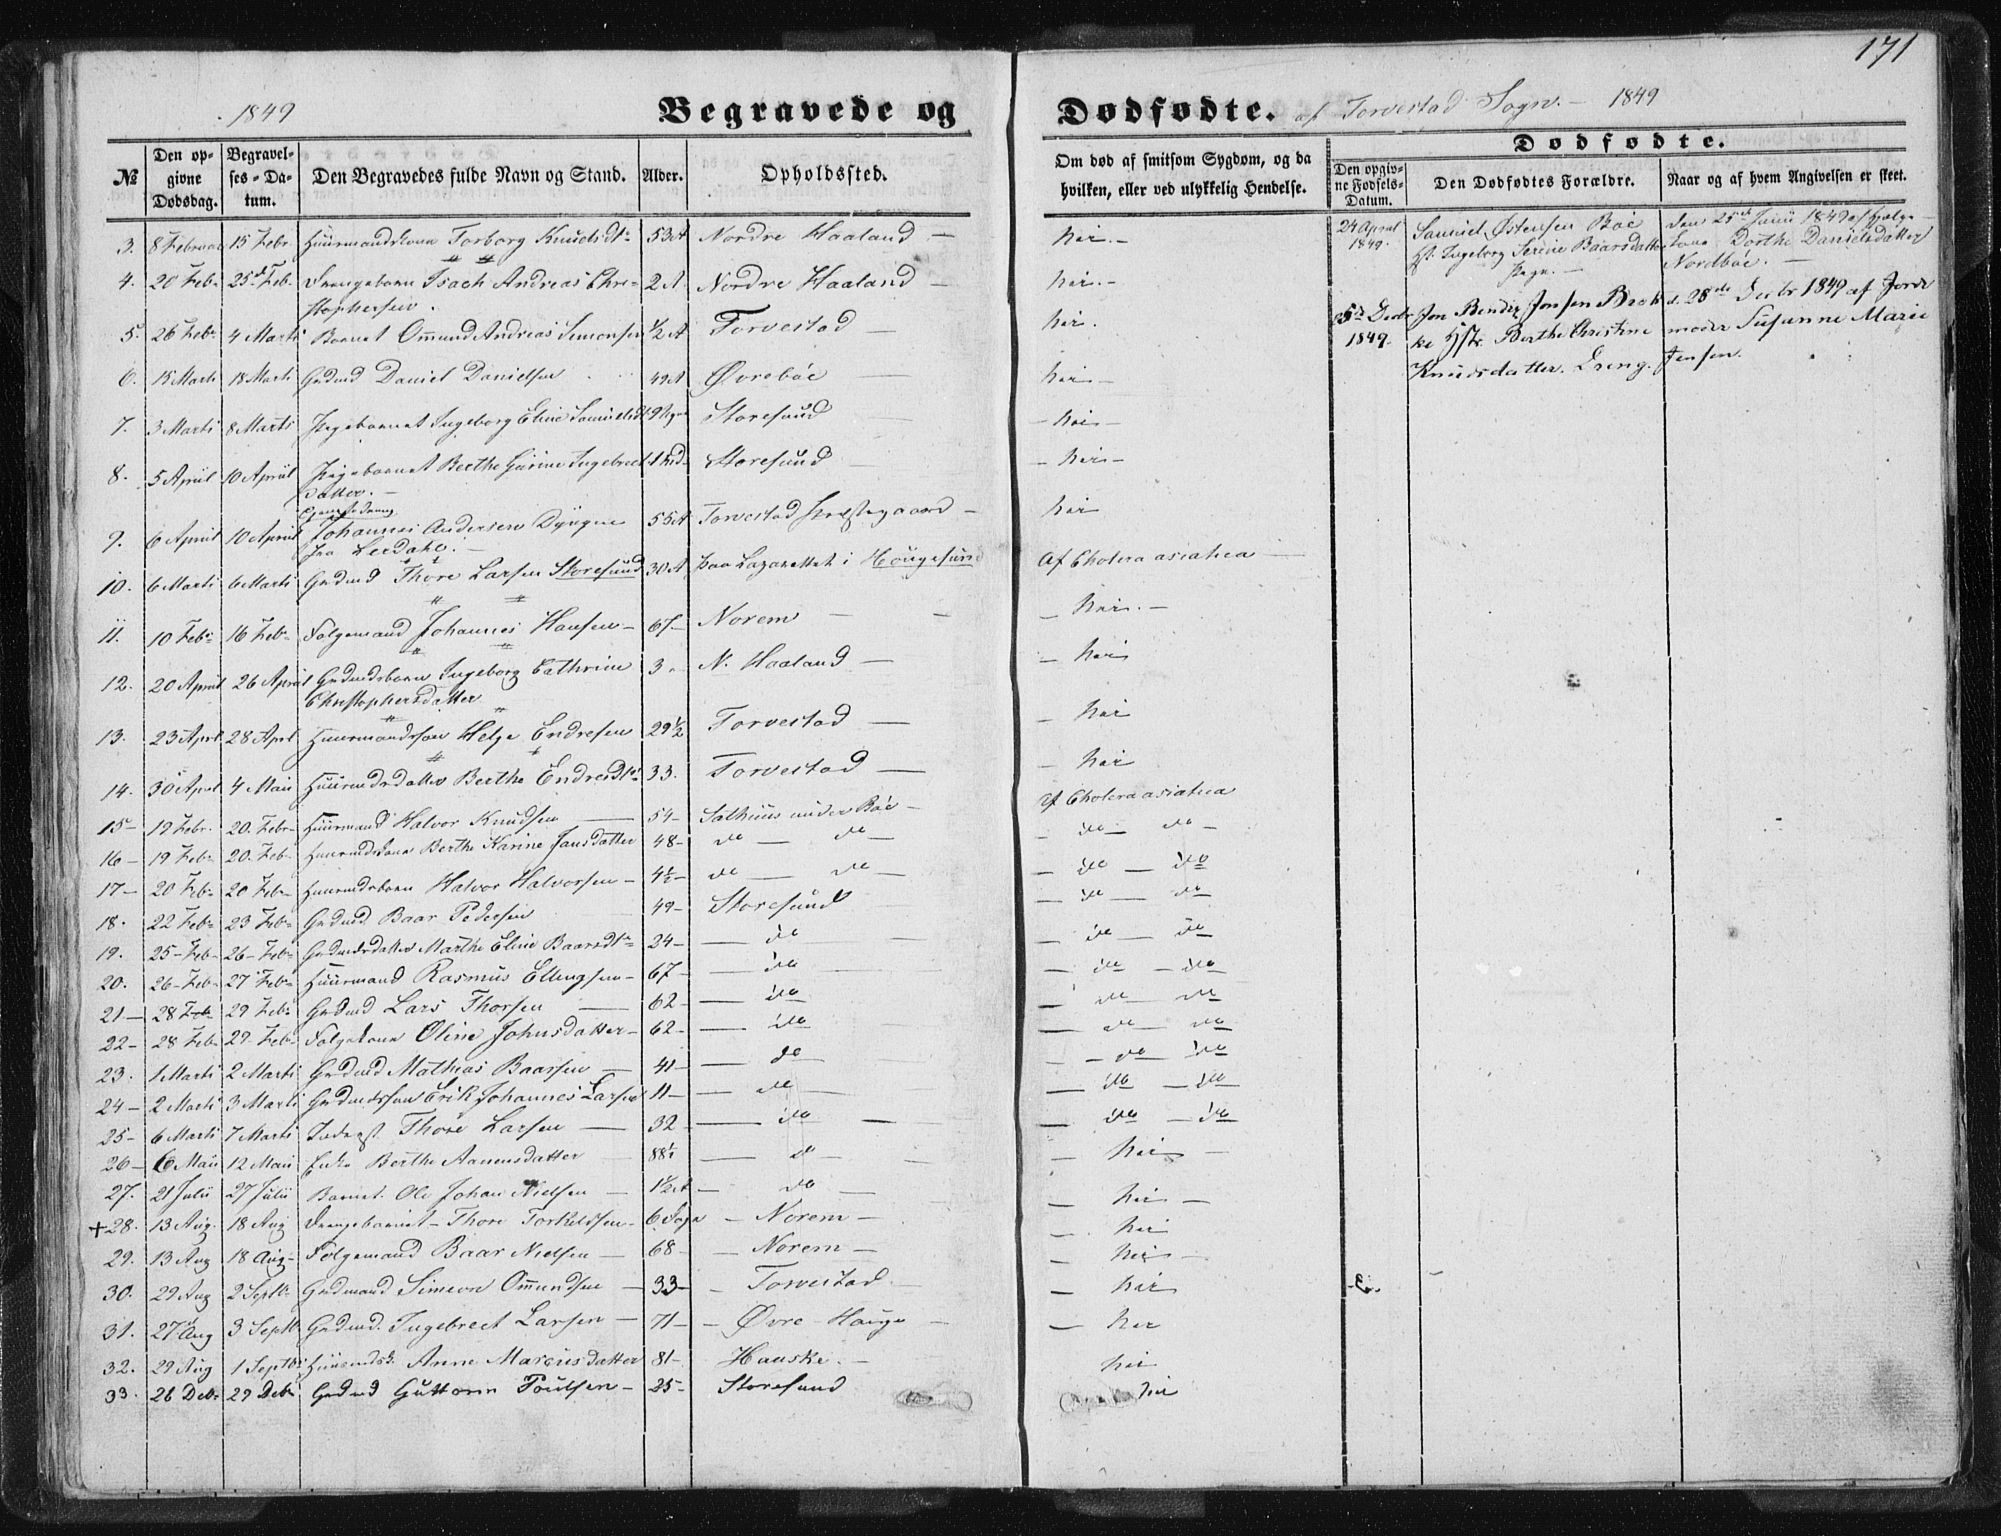 171
1849
Begravede og Dødfødte. af Torvestad Sogn. – 1849
№ Den opgivne Dødsdag. Begravelses-Datum. Den Begravedes fulde Navn og Stand. Alder. Opholdssted. Om død af smitsom Sygdom, og da hvilken, eller ved ulykkelig Hendelse.
Dødfødte.
Den opgivne Fødsels-Datum. Den Dødfødtes Forældre. Naar og af hvem Angivelsen er skeet.
3. 8 Februar 15 Febr. Huusmandskone Torborg Knudsdtr 53 A Nordre Haaland – Nei. –
4. 20 Feb. 25 Feb. Drengebarn Isach Andreas Christophersen. 2 A Nordre Haaland – Nei. –
5. 26 Feb. 4 Marti Barnet Ommund Andreas Simonsen ½ A Torvestad – Nei.
6. 15 Marti 18 Marti Grdmd Daniel Danielsen 49 A Øvrebøe Nei –
7. 3 Marti 8 Marti Pigebarnet Ingeborg Eline Samuelsdt 9 Storesund – Nei –
8. 5 Apriil 10 Apriil Pigebarnet Berthe Gurine Ingebrectsdatter. – 1 Storesund – Nei –
9. 6 Apriil 10 Apriil Johannes Andersen Dyngen fra Leerdahl. – 55 A Torvestad Præstegaard – Nei
10. 6 Marti 6 Marti Grdmd Thore Larsen Storesund 30 A Paa Lazarettet i Hougesund Af Cholera asiatica
11. 10 Feb. 16 Feb. Folgemand Johannes Hansen – 67 – Norem – – Nei. –
12. 20 Apriil 26 Apriil Grdmdsbarn Ingeborg Cathrine Christophersdatter 3 – N. Haaland – – Nei
13. 23 Aprl 28 Aprl Huusmandssøn Helge Endresen 29½ Torvestad – – Nei
14. 30 Aprl 4 Maii Huusmdsdatter Berthe Endresdtr 33. Torvestad – – Nei
15 – 19 Febr. 20. Febr – Huusmand Halvor Knudsen – 54 – Salhuus under Bøe – af Cholera asiatica
16 – 19 Feb. 20. Feb – Huusmdskone Berthe Karine Jansdatter 48 – do – do – – do – do –
17 – 20 Feb. 20 Feb – Huusmdsbarn Halvor Halvorsen – 4½ – do – do – – do – do
18. 22 Feb. 23 Feb. Grdmd Baar Pedersen 49 – Storesund – do – do
19. 25 – Feb. 26 – Feb. Grdmdsdatter Marthe Eline Baarsdtr 24 – – do – do – do
20. 26 – Feb. 27 Feb. Huusmand Rasmus Ellingsen – 67 – – do – do – do
21 – 28 Feb 29 Feb. Grdmd Lars Thorsen – 62 – – do – do – do
22 – 28 Feb. 29 Feb. Folgekone Oline Johnsdatter – 62 – – do – do – do
23. 1 Marti 2 Marti Grdmd Mathias Baarsen – 41 – – do – do – do
24 – 2 Marti 3 Marti Grdmdssøn Erik Johannes Larsen 11 – – do – – do – do
25 – 6 Marti 7 Marti Inderst. Thore Larsen – 32 – – do – – do – do
26 – 6 Maii 12 Maii Enke Berthe Aamundsdatter 88½ – do – – Nei –
27. 21 Julii 27 Julii Barnet. Ole Johan Nielsen – 1½ A – do – – Nei –
+28. 13 Aug. 18 Aug Drengebarnet – Thore Torkildsen – 6 Dage – Norem – – Nei
29. 13 Aug 18 Aug – Følgemand Baar Nielsen – 68 – – Norem – – Nei –
30. 29 Aug 2 Septb. Grdmand Simeon Ommundsen – 33 – – Torvestad – – Nei
31. 27 Aug 3 Septb. Grdmd. Ingebrect Larsen – 71 – – Øvre – Hauge – Nei
32. 29 Aug 1 Septbr Huusmdsk. Anne Marcusdatter 81 – Hauske. – Nei
33. 26 Deb. 29 Deb. Grdmd Guttorm Poulsen – 25 – Storesund Nei
24 April 1849. Samuel Østensen Bøe Hst. Ingeborg Serine Baarsdatter Pige. – den 25de Junii 1849 af Hjelpekone Dorthe Danielsdatter Nordbøe. –
5te Decbr 1849. Jon Bendix Jonsen Bakke Hstr. Berthe Christine Knudsdatter. Dreng. d. 28de Decbr 1849 af Jordemoder Susanne Marie Jensen.